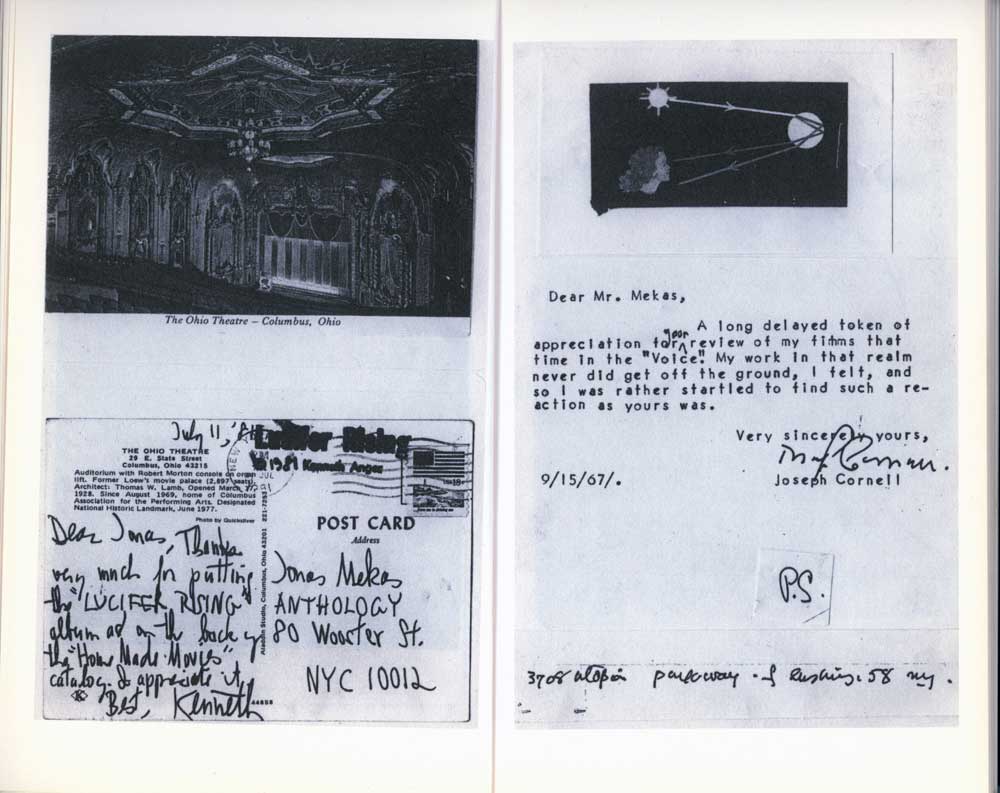 The Ohio Theatre — Columbus, Ohio
July 11, '81
Lucifer Rising
© 1981 Kenneth Anger
THE OHIO THEATRE
29 E. State Street
Columbus, Ohio 43215
Auditorium with Robert Morton console on organ
lift. Former Loew's movie palace (2,897 seats).
Architect: Thomas W. Lamb. Opened March
1928. Since August 1969, home of Columbus
Association for the Performing Arts. Designated
National Historic Landmark, June 1977.
Photo by Quicksilver
Dear Jonas, Thanks
very much for putting
the "LUCIFER RISING"
album ad on the back of
the "Home Made Movies"
catalog. I appreciate it
Best, Kenneth
44838
Studio, Columbus, Ohio 43201
POST CARD
Address
Jonas Mekas
ANTHOLOGY
80 Wooster St.
NYC 10012
Dear Mr. Mekas,
A long delayed token of
appreciation for your review of my films that
time in the "Voice". My work in that realm
never did get off the ground, I felt, and
so I was rather startled to find such a re-
action as yours was.
Very sincerely yours,
Joseph Cornell
9/15/67/.
P.S.
3708 utopia parkway - flushing. 58 ny.